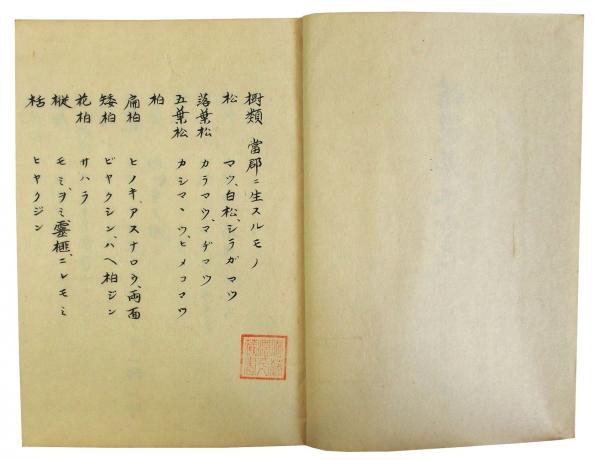 樹類 當郡ニ生スルモノ
松 マツ、白松、シラガマツ
落葉松 カラマツ、マヂマツ
五葉松 カシマヽツ、ヒメコマツ
柏
扁柏 ヒノキ、アスナロウ、両面
矮柏 ビヤクシン、ハヘ柏ジン
花柏 サハラ
樅 モミ、ヲミ、靈榧、ニレモミ
栝 ヒヤクジン